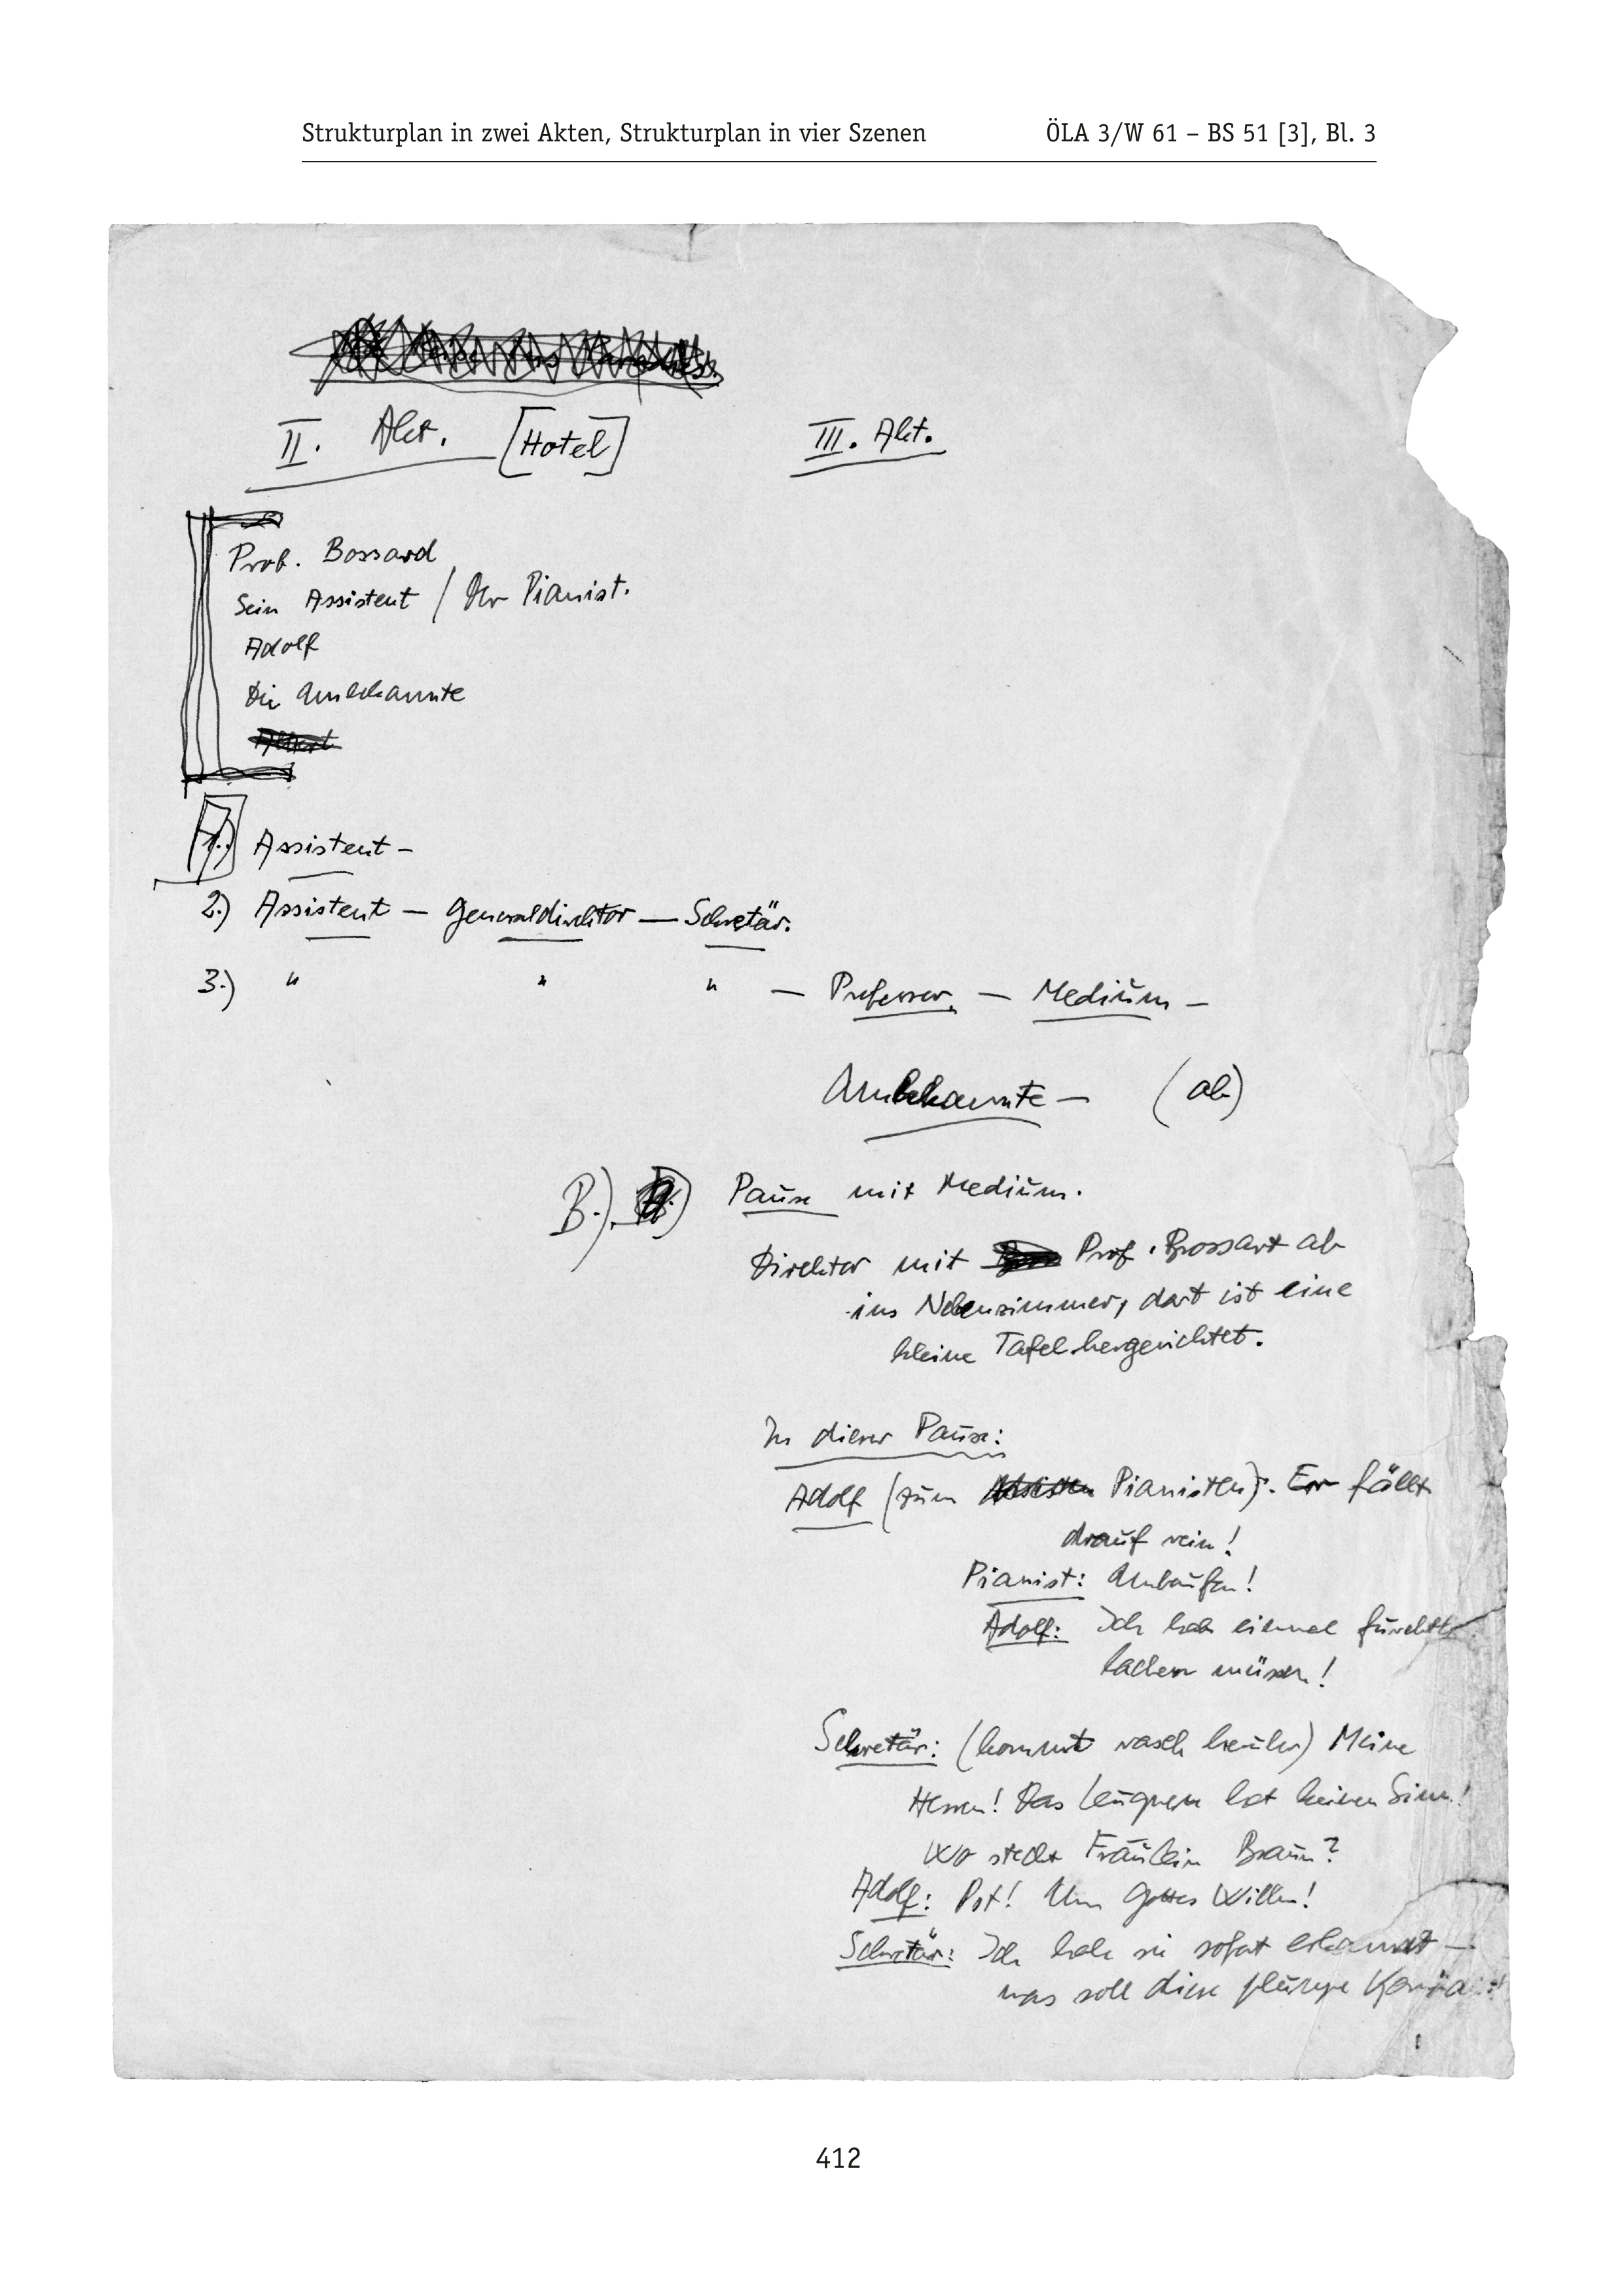 Strukturplan in zwei Akten, Strukturplan in vier Szenen ÖLA 3/W 61 – BS 51 [3], Bl. 3
II. Akt. [Hotel] III. Akt.
Prof. Bossard
Sein Assistent / Der Pianist.
Adolf
Die Unbekannte
1.) Assistent –
2.) Assistent – Generaldirektor – Sekretär.
3.) " " " – Professor – Medium –
Unbekannte – (ab)
B.) Pause mit Medium.
Direktor mit Prof. Brossart ab
ins Nebenzimmer, dort ist eine
kleine Tafel hergerichtet.
In dieser Pause:
Adolf (zum Pianisten): Er fällt
drauf rein!
Pianist: Unberufen!
Adolf: Ich hab einmal
lachen müssen!
Sekretär: (kommt rasch herüber) Meine
Herren! Das Leugnen hat keinen Sinn!
Wo steckt Fräulein Braun?
Adolf: Pst! Um Gottes Willen!
Sekretär: Ich hab sie sofort erkannt –
was soll diese
412